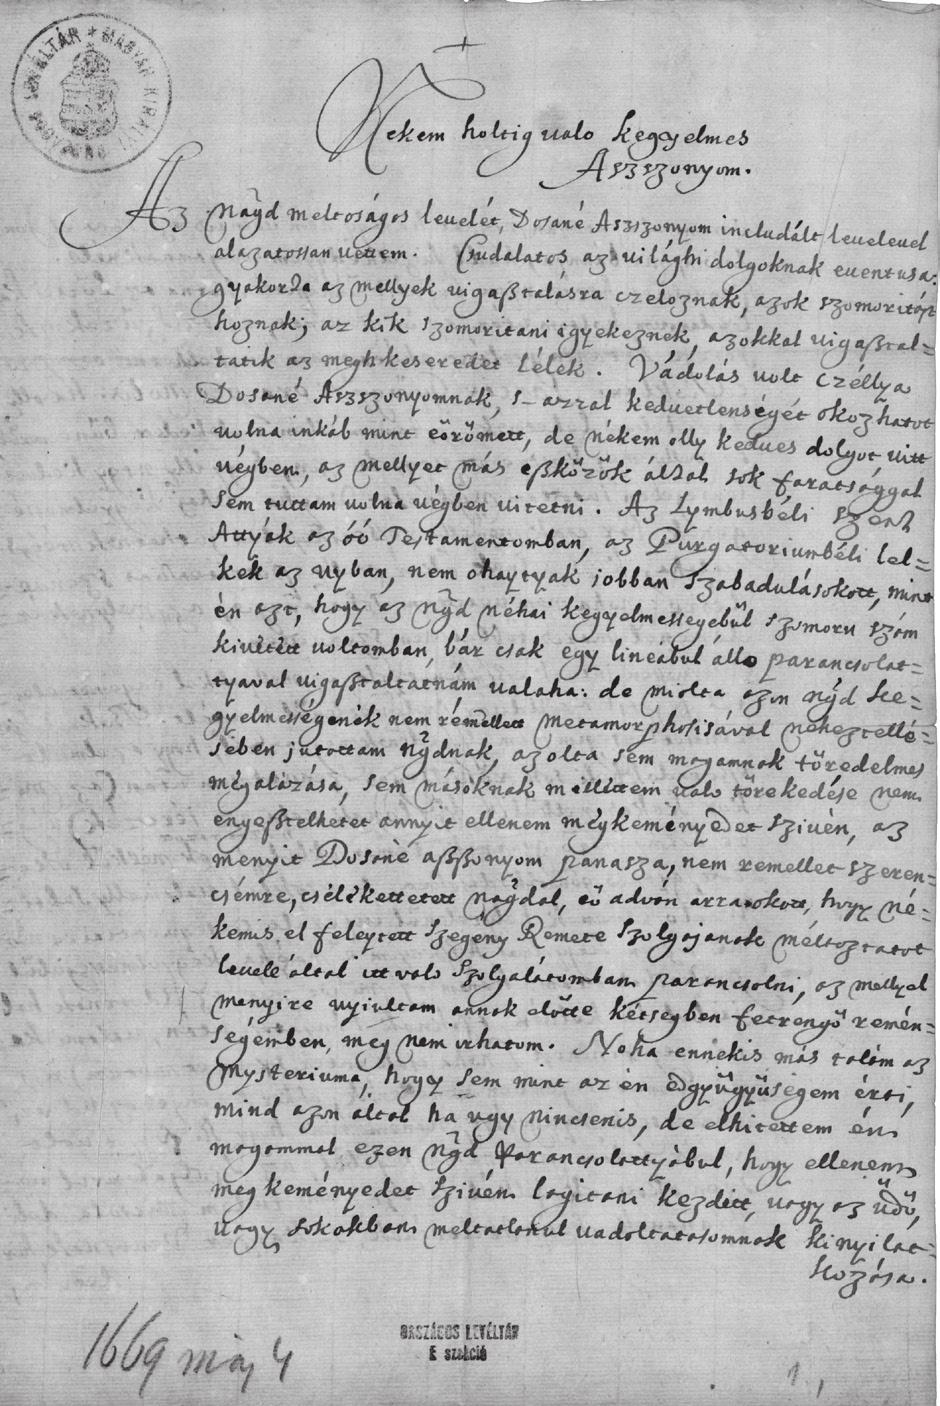 Nekem holtig valo kegyelmes
Aszszonyom.
Az Nagd meltoságos levelét, Dosané Aszszonyom includált levelevel
alazatossan vettem. Csudalatos az világhi dolgoknak eventusa.
gyakorta az mellyek vigaßtalásra czeloznak, azok
hoznak; az kik szomoritani igyekeznek, azokkal vigaßtal=
tatik az megh keseredet Lélek. Vádolás volt Czéllya
Dosané Aszszonyomnak, s- azzal kedvetlenségét okozhatot
volna inkáb mint eörömett, de nékem olly kedves dolgot vitt
végben, az mellyet más eßközök által sok faratsággal
sem tuttam volna végben vitetni. Az Lymbusbéli Szent
Attyák az óó Testamentomban, az Purgatoriumbéli lel=
kek az uyban, nem ohaytyak jobban szabadulásokott, mint
én azt, hogy az Ngd néhai kegyelmessegebül szomoru szám
kivetett voltomban, bár csak egy lineábul álló parancsolat=
tyaval vigaßtaltatnám valaha: de miolta azon Ngd ke=
gyelmességenek nem remellett metamorphosisával neheztellé=
sében jutottam Ngdnak, azolta sem magamnak töredelmes
megalázása, sem másoknak mellettem való törekedése nem
engeßtelhetet annyit ellenem megkeményedet szivén, az
menyit Dosané aßßonyom panasza, nem remellet szeren=
csémre, cselekettetett nagdal, eö adván arra okott, hogy né=
kemis el feleytett Szegény Remete Szolgajanak méltoztatot
levele által itt valo Szolgalátomban parancsolni, az mellyel
menyire uyiultam annak elötte kétségben fetrengö remén=
ségemben, meg nem irhatom. Noha ennekis más talám az
Mysteriuma, hogy sem mint az én edgyügyüségem érti,
mind azon által ha ugy nincsenis, de elhitettem én
magammal ezen Ngd Parancsolattyábul, hogy ellenem
meg keményedet szivén lagitani kezdett, vagy az üdö,
vagy sokakban meltatlanul vadoltatasomnak kinyilat=
kozása.
1669 máj 4
ORSZÁGOS LEVÉLTÁR
E szekció
1.